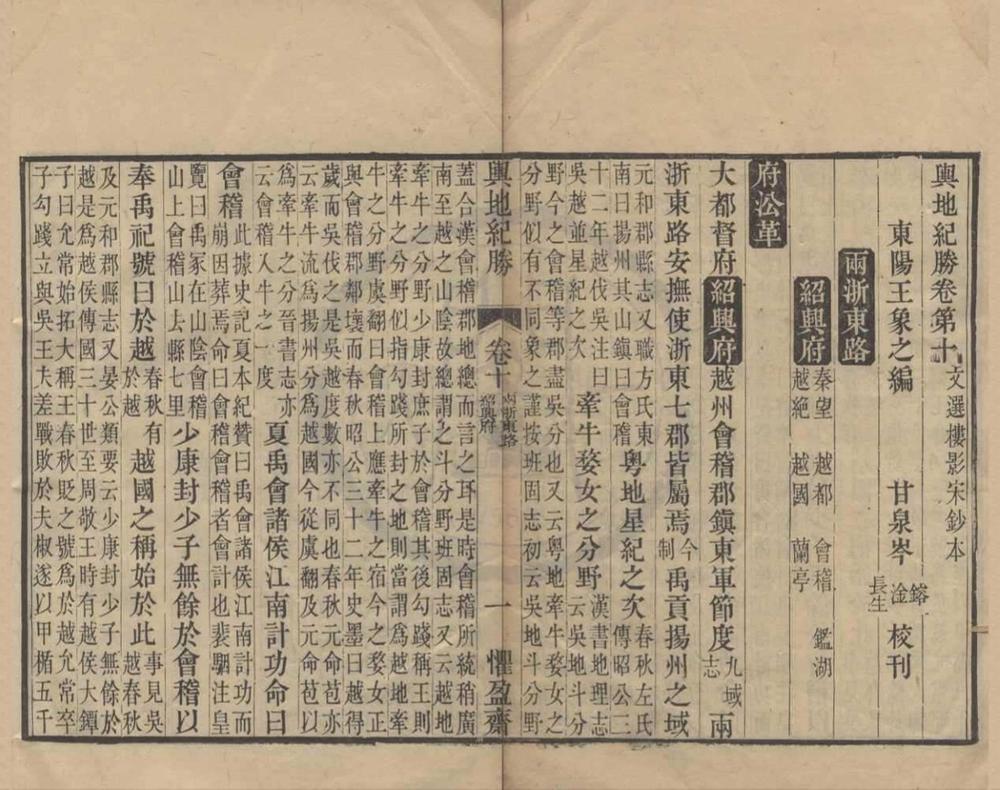 輿地紀勝卷第十 文選樓影宋鈔本
東陽王象之編 甘泉岑 鎔淦長生 校刊
兩浙東路
紹興府 秦望 越都 會稽 鑑湖 越絶 越國 蘭亭
府沿革
大都督府紹興府越州會稽郡鎮東軍節度九域志兩
浙東路安撫使浙東七郡皆屬焉今制禹貢揚州之域
元和郡縣志又職方氏東南曰揚州其山鎮曰會稽粤地星紀之次春秋左氏傳昭公三
十二年越伐吳注曰吳越並星紀之次牽牛婺女之分野漢書地理志云吳地斗分
野今之會稽等郡盡吳分也又云粤地牽牛婺女之分野似有不同象之謹按班固志初云吳地斗分野
蓋合漢會稽郡地總而言之耳是時會稽所統稍廣南至越之山陰故總謂之斗分野班固志又云越地
牽牛之分野少康封庶子於會稽其後勾踐稱王則牽牛之分野似指勾踐所封之地則當謂爲越地牽
牛之分野虞翻曰會稽上應牽牛之宿今之婺女正與會稽郡鄰壤而春秋昭公三十二年史墨曰越得
歲而吳伐之是吳越度數亦不同也春秋元命苞亦云牽牛流爲揚州分爲越國今從虞翻及元命苞以
爲牽牛之分晉書志亦云會稽入牛之一度夏禹會諸侯江南計功命曰
會稽此據史記夏本紀贊曰禹會諸侯江南計功而崩因葬焉命曰會稽會稽者會計也裴駰注皇
覽曰禹冢在山陰會稽山上會稽山去縣七里少康封少子無餘於會稽以
奉禹祀號曰於越春秋於越有越國之稱始於此事見吳越春秋
及元和郡縣志又晏公類要云少康封少子無餘於越是爲越侯傳國三十世至周敬王時有越侯大鐔
子曰允常始拓大稱王春秋貶之號爲於越允常卒子勾踐立與吳王夫差戰敗於夫椒遂以甲楯五千
輿地紀勝 卷十 兩浙東路 紹興府 一 懼盈齋